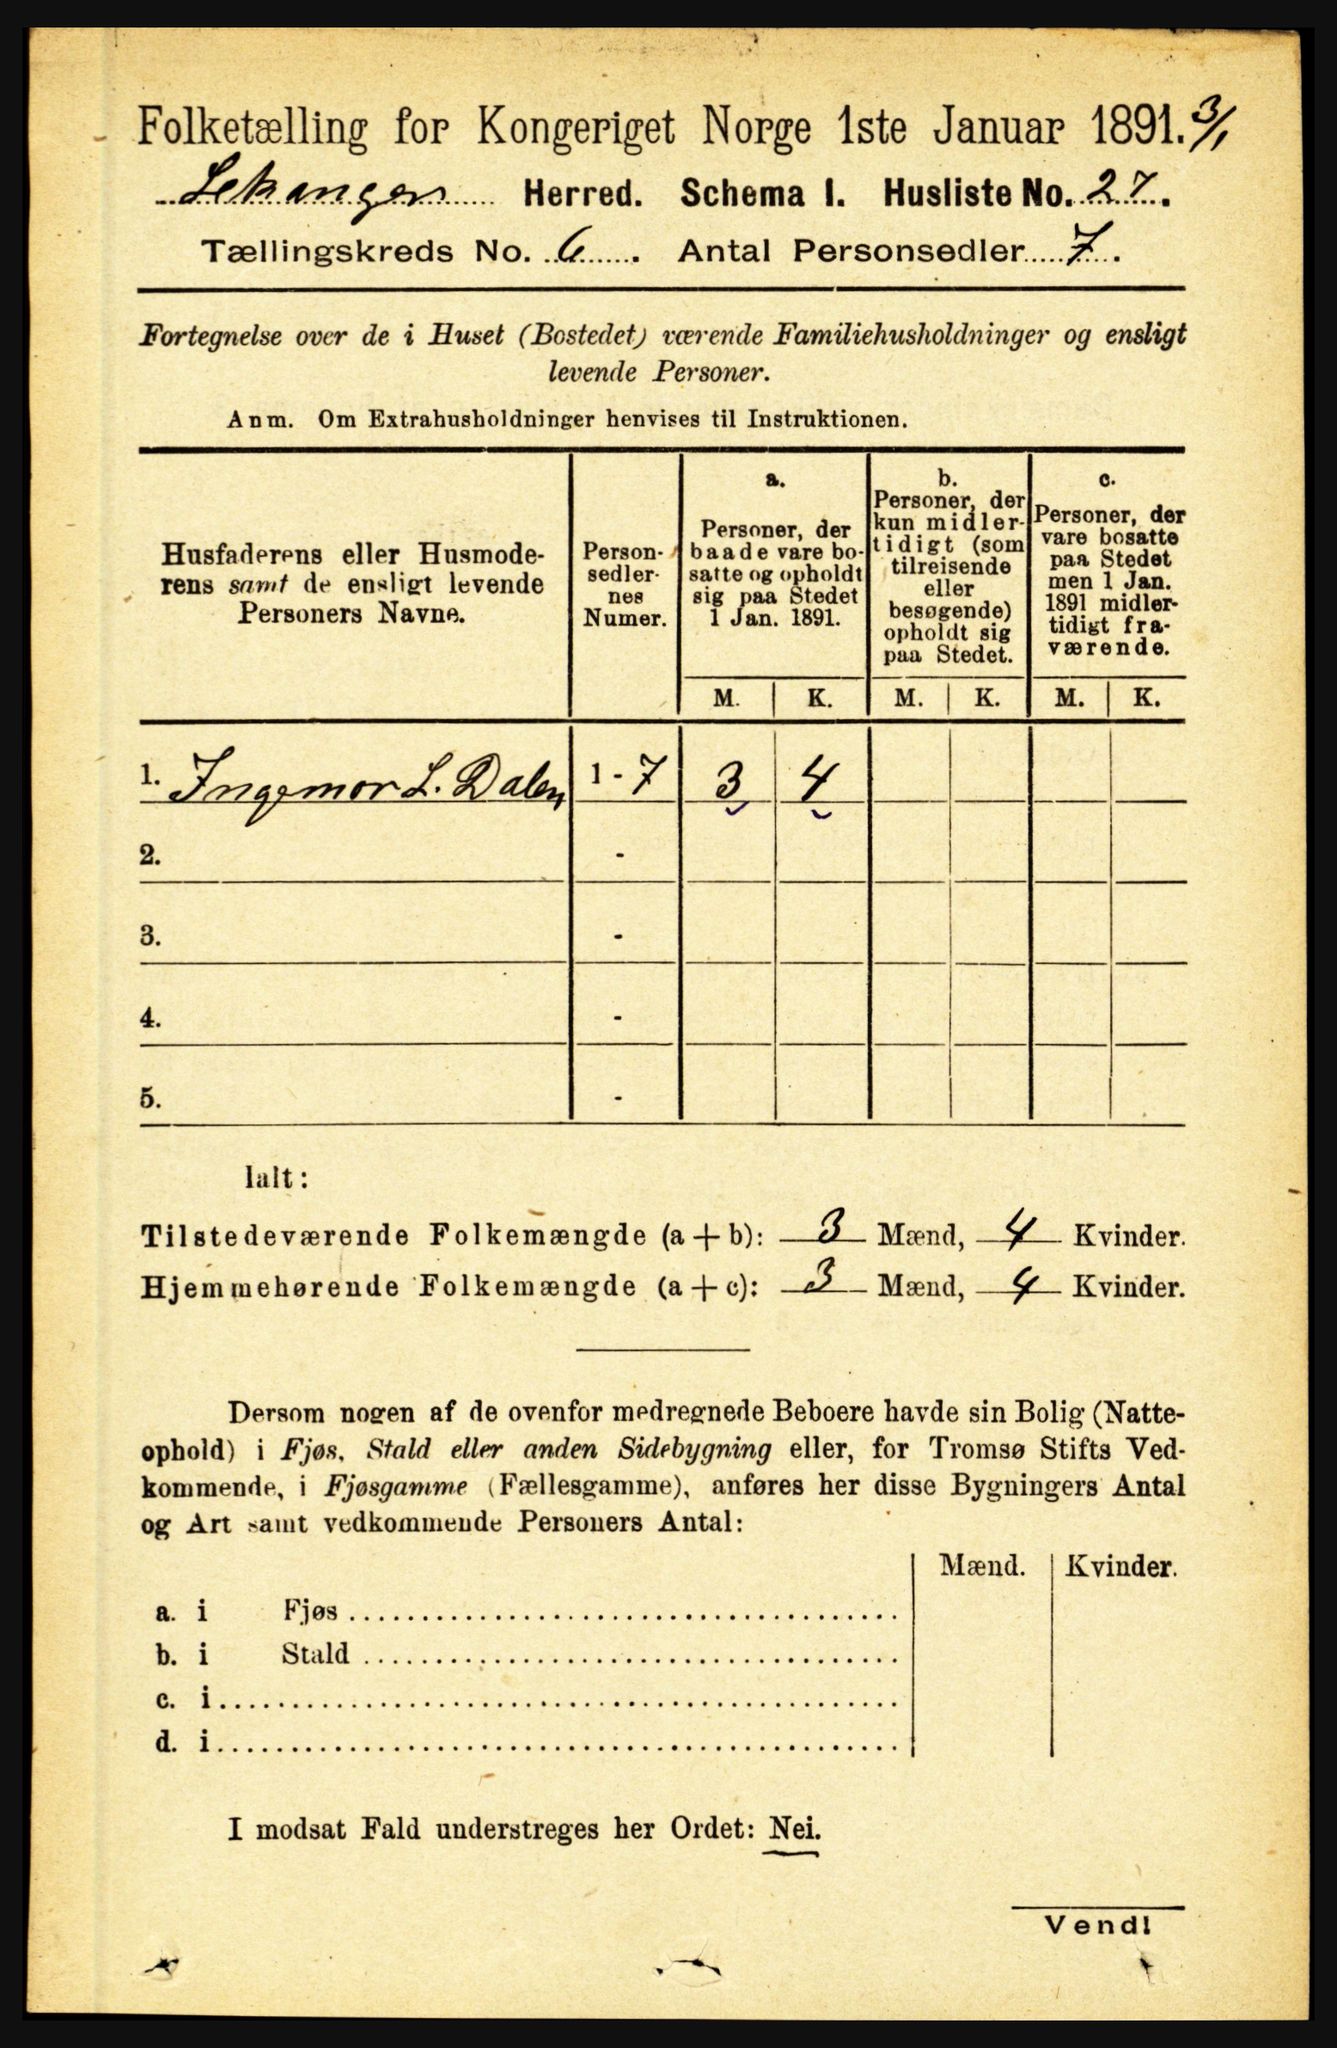 Folketælling for Kongeriget Norge 1ste Januar 1891. 3/1
Lekanger Herred. Schema I. Husliste No. 27.
Tællingskreds No. 6. Antal Personsedler 7.
Fortegnelse over de i Huset (Bostedet) værende Familiehusholdninger og ensligt
levende Personer.
Anm. Om Extrahusholdninger henvises til Instruktionen.
Husfaderens eller Husmode-
rens samt de ensligt levende
Personers Navne.
Person-
sedler-
nes
Numer.
a.
Personer, der
baade vare bo-
satte og opholdt
sig paa Stedet
1 Jan. 1891.
b.
Personer, der
kun midler-
tidigt (som
tilreisende
eller
besøgende)
opholdt sig
paa Stedet.
c.
Personer, der
vare bosatte
paa Stedet
men 1 Jan.
1891 midler-
tidigt fra-
værende.
M. K. M. K. M. K.
1. Ingemor L. Dalen 1 - 7 3 4
2. -
3. -
4. -
5. -
Ialt:
Tilstedeværende Folkemængde (a + b): 3 Mænd, 4 Kvinder.
Hjemmehørende Folkemængde (a + c): 3 Mænd, 4 Kvinder.
Dersom nogen af de ovenfor medregnede Beboere havde sin Bolig (Natte-
ophold) i Fjøs, Stald eller anden Sidebygning eller, for Tromsø Stifts Ved-
kommende, i Fjøsgamme (Fællesgamme), anføres her disse Bygningers Antal
og Art samt vedkommende Personers Antal:
Mænd. Kvinder.
a. i Fjøs
b. i Stald
c. i
d. i
I modsat Fald understreges her Ordet: Nei.
Vend!